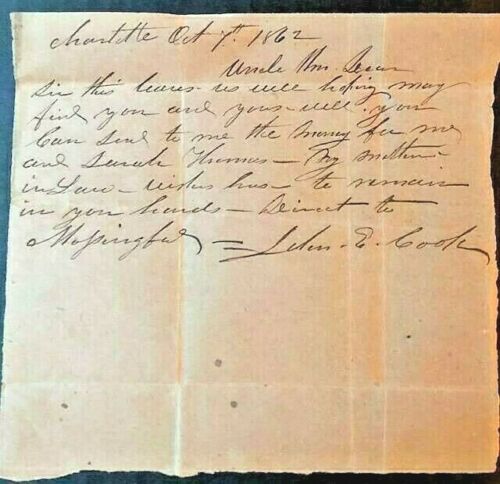 Charlotte Oct 7th. 1862
Uncle Thos. Dear
Sir this leaves us well hoping may
find you and yours well. you
Can send to me the money for me
and Sarah Thomas — My mother
in Law — wishes hers to remain
in you hands — Direct to
Mossingford = John. E. Cook